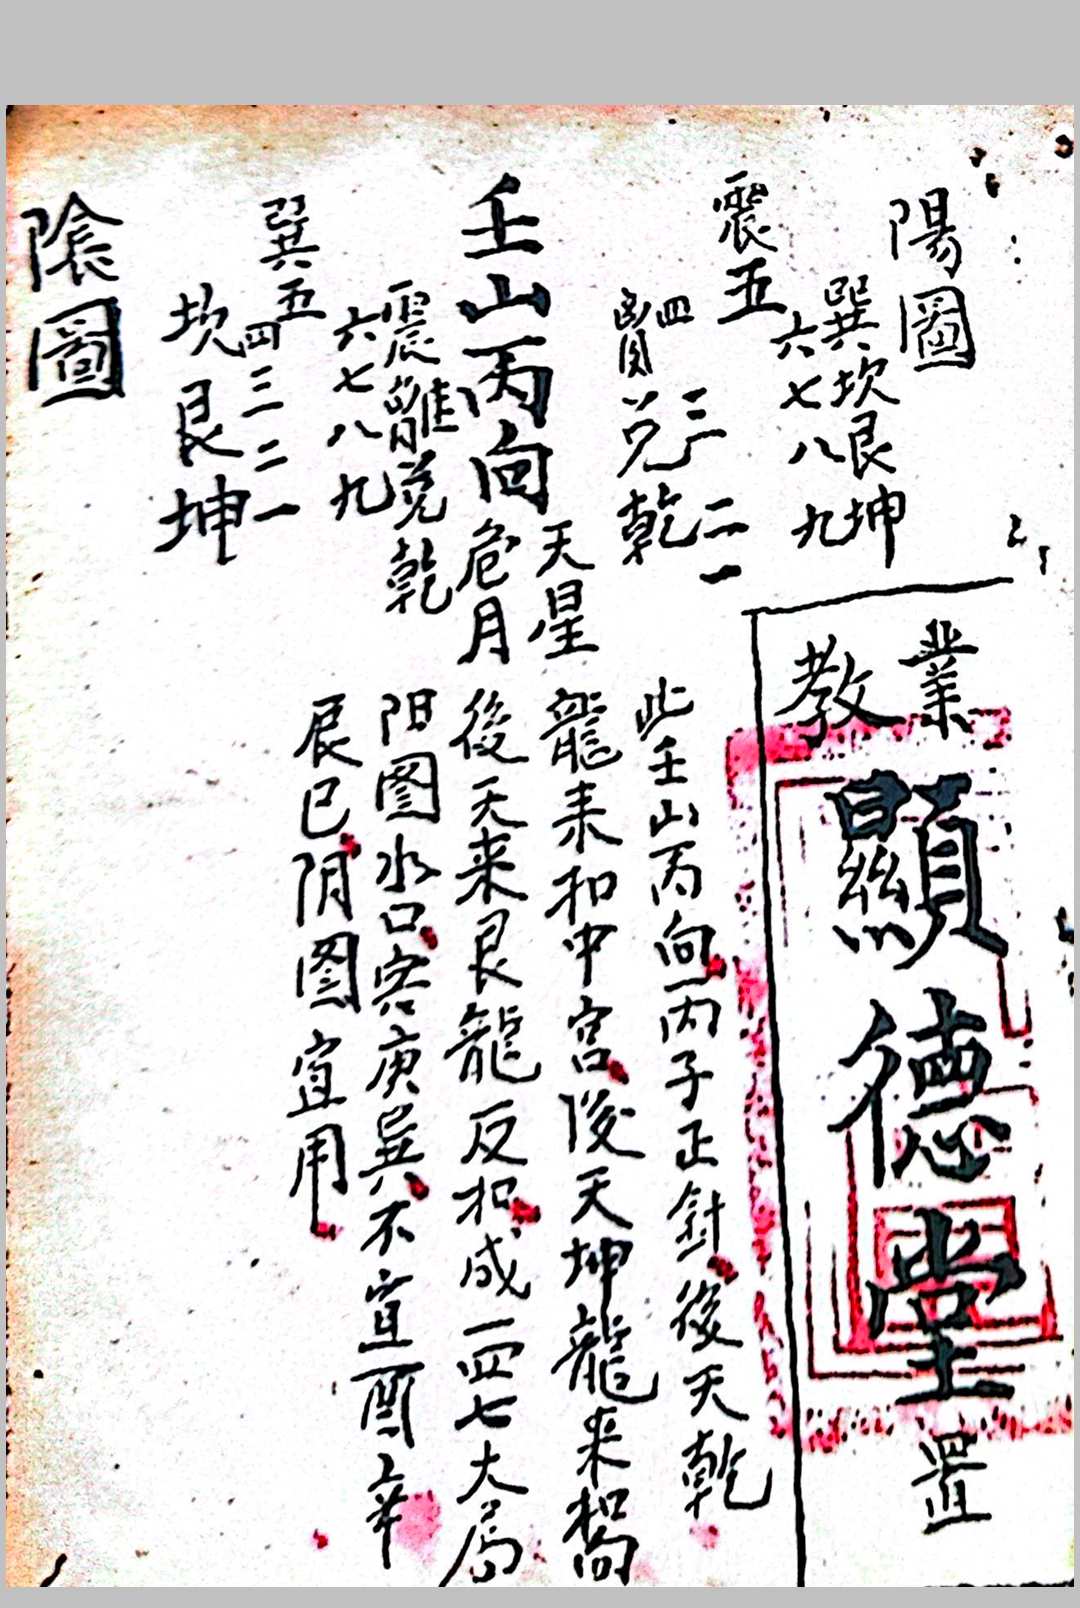 陽圖
巽坎艮坤
六七八九
震五
四三二一
兌乾
業教
顯德堂置
壬山丙向
天星
危月
震離兌乾
六七八九
巽五
四三二一
坎艮坤
陰圖
此壬山丙向丙子正針後天乾
龍来扣中宮後天坤龍来
後天来艮龍反扣成一四七大局
阳图水口客庚巽不宜酉辛
辰巳阴图宜用